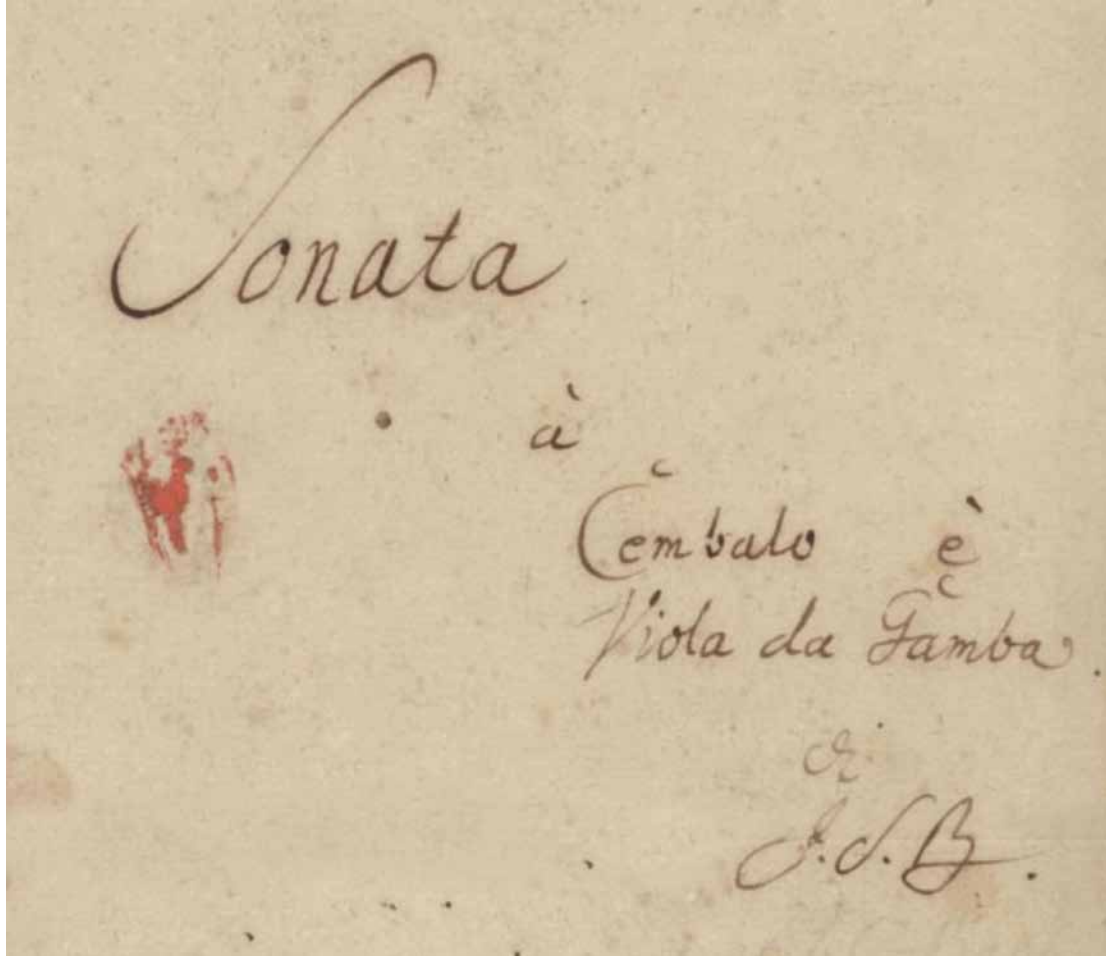 Sonata
à
Cembalo è
Viola da Gamba.
di
J. S. B.